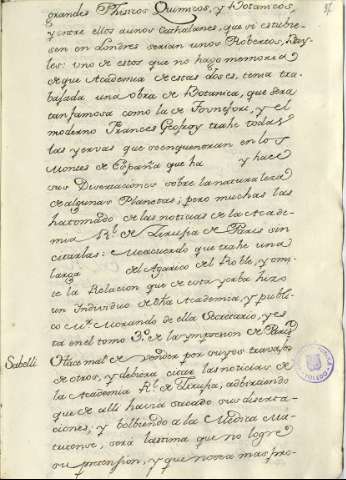 grandes Phisicos Quimicos, y Botanicos,
y entre ellos aunos Cathalanes, que si estubie-
sen en Londres serian unos Robertos, Bay-
les: uno de estos que no hago memoria
de que Academia de estas dos es, tenia tra-
bajada una obra de Botanica, que sera
tan famosa como la de Tornefort, y el
moderno Frances Geofroy trahe todas
las yervas que se encuentran en los
Montes de España que ha y hace
sus Disertaciones sobre la naturaleza
de algunas Plantas; pero muchas las
ha tomado de las noticias de la Acade-
mia Rl. de Zirujia de Paris sin
citarlas: Me acuerdo que trahe una
larga del Agarico del Roble, y omi-
te la Relacion que de esta yerba hizo
un Individuo de dha Academia, y publi-
co Mr. Morando de ella Secretario, y es
ta en el tomo 3º. de la ympresion de Paris
Sabelli
Hace mal de vender por suyos travajos
de otros, y debiera citar las noticias de
la Academia Rl. de Zirujia, advirtiendo
que de alli havia sacado sus diserta-
ciones; y bolbiendo a la Medica Ma-
tritense, será lastima que no logre
su pretension, y que no sea mas pro-
TOLEDO